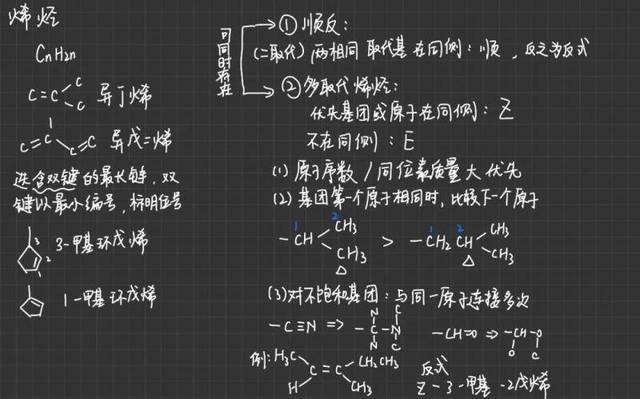 烯烃
CnH2n
C=C
C
C
异丁烯
C=C
C=C
异戊二烯
选含双键的最长链,双
键以最小编号,标明位号
3
2
1
3-甲基环戊烯
1-甲基环戊烯
可同时存在
① 顺反:
(二取代) 两相同取代基在同侧:顺,反之为反式
② 多取代烯烃:
优先基团或原子在同侧:Z
不在同侧:E
(1) 原子序数/同位素质量大优先
(2) 基团第一个原子相同时,比较下一个原子
1 2
-CH
CH3
CH3
△
>
1 2
-CH2CH
CH3
CH3
△
(3) 对不饱和基团:与同一原子连接多次
-C≡N ⇒ -C-N
N C
N C
-CH=O ⇒ -CH-O
O C
例: H3C CH2CH3
C=C
H CH3
反式
Z-3-甲基-2戊烯